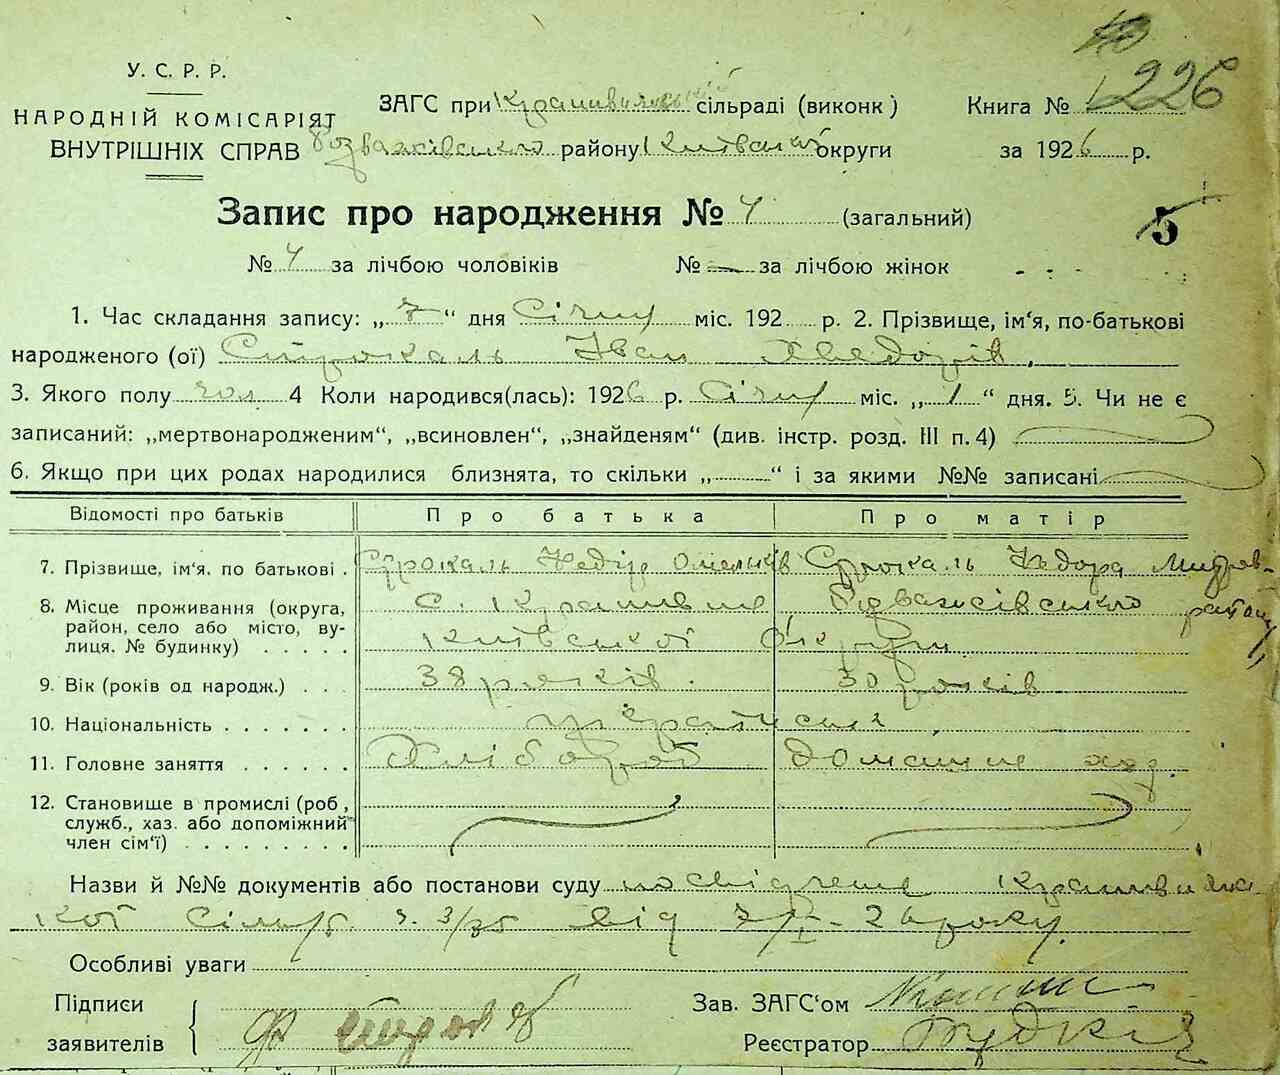 У. С. Р. Р.
НАРОДНІЙ КОМІСАРІЯТ
ВНУТРІШНІХ СПРАВ
ЗАГС при сільраді (виконк)
Розважівського району Київської округи
Книга № 226
за 1926 р.
Запис про народження № 4 (загальний)
5
№ 4 за лічбою чоловіків № — за лічбою жінок
1. Час складання запису: „7“ дня Січня міс. 192 р. 2. Прізвище, ім‘я, по-батькові
народженого (ої) Строкаль Іван Хведорів.
3. Якого полу чол 4 Коли народився(лась): 1926 р. Січня міс. „1“ дня. 5. Чи не є
записаний: „мертвонародженим“, „всиновлен“, „знайденям“ (див. інстр. розд. III п. 4)
6. Якщо при цих родах народилися близнята, то скільки „ “ і за якими №№ записані
Відомості про батьків Про батька Про матір
7. Прізвище, ім‘я, по батькові . Строкаль Федір Омельків Строкаль Федора
8. Місце проживання (округа, район, село або місто, вулиця. № будинку) . . . . . с. Розважівського району
Київської Округи
9. Вік (років од народж.) . . . 38 років. 30 років
10. Національність . . . . . . . українській
11. Головне заняття . . . . . . Хлібороб домашнє хоз.
12. Становище в промислі (роб., служб., хаз. або допоміжний член сім‘ї) . . . . . . . . .
Назви й №№ документів або постанови суду посвідчення
кої Сільради з. 3/35 від 7/I-26 року.
Особливі уваги
Підписи
заявителів
Зав. ЗАГС‘ом
Реєстратор